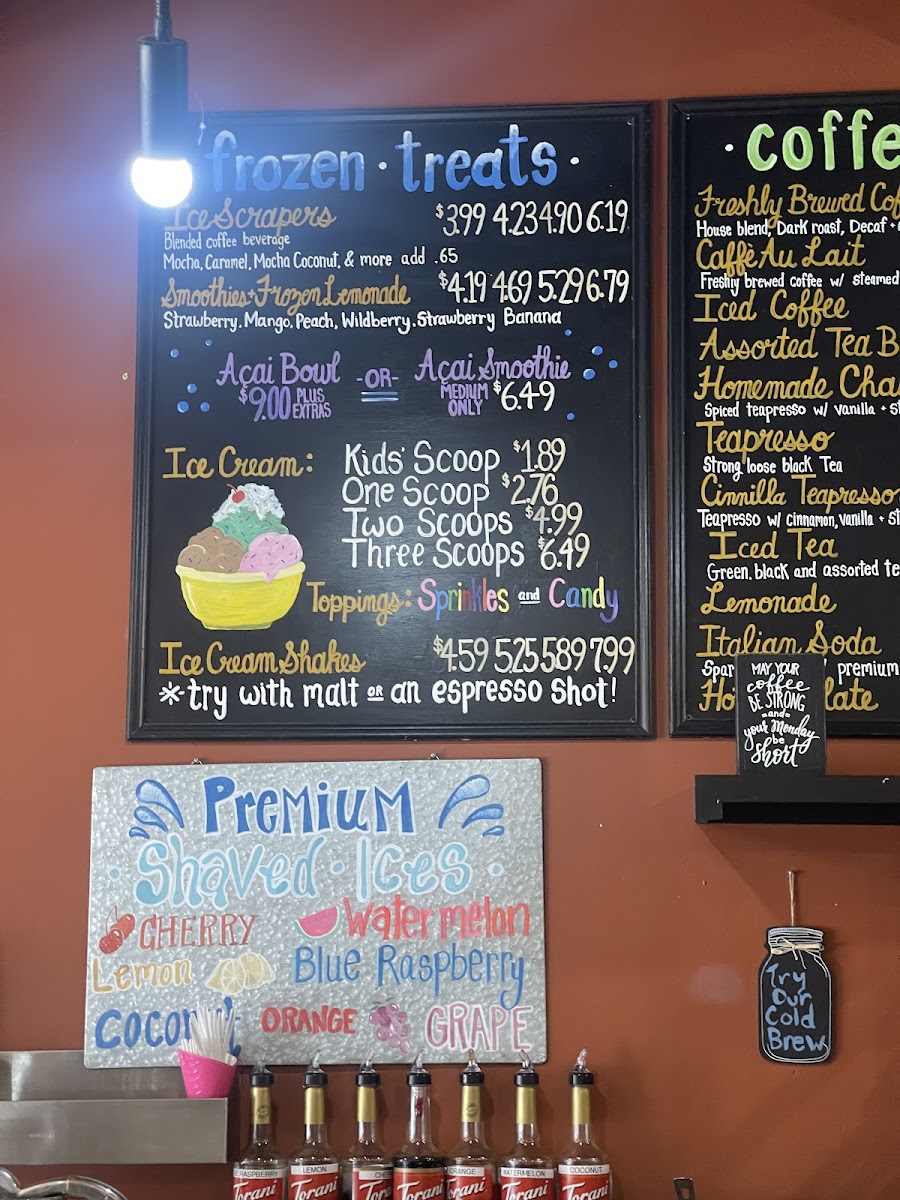 frozen · treats ·
Ice Scrapers $3.99 4.23 4.90 6.19
Blended coffee beverage
Mocha, Caramel, Mocha Coconut, & more add .65
Smoothies + Frozen Lemonade $4.19 4.69 5.29 6.79
Strawberry, Mango, Peach, Wildberry, Strawberry Banana
Açai Bowl -OR- Açai Smoothie
$9.00 PLUS EXTRAS MEDIUM ONLY $6.49
Ice Cream: Kids' Scoop $1.89
One Scoop $2.76
Two Scoops $4.99
Three Scoops $6.49
Toppings: Sprinkles and Candy
Ice Cream Shakes $4.59 5.25 5.89 7.99
*try with malt or an espresso shot!
· coffe
Freshly Brewed Cof
House blend, Dark roast, Decaf +
Caffè Au Lait
Freshly brewed coffee w/ steamed
Iced Coffee
Assorted Tea B
Homemade Cha
Spiced teapresso w/ vanilla + st
Teapresso
Strong loose black Tea
Cinnilla Teapresso
Teapresso w/ cinnamon, vanilla + st
Iced Tea
Green, black and assorted te
Lemonade
Italian Soda
Spar premium
Ho late
MAY YOUR
coffee
BE STRONG
-and-
your Monday
be
short
Premium
· Shaved · Ices ·
CHERRY Watermelon
Lemon Blue Raspberry
Coconut ORANGE GRAPE
Try
Our
Cold
Brew
E RASPBERRY LEMON CHE ORANGE WATERMELON COCONUT
Torani Torani Tora Torani Torani Torani Torani